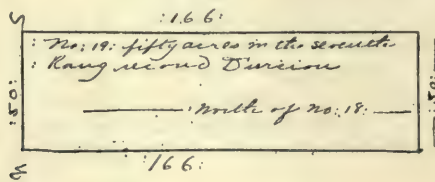 :166:
: No: 19: fifty acres in the seventh
: Rang second Division
:50:
:50:
: North of No: 18:
:166: